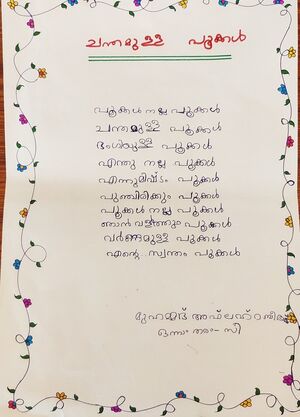 ചന്തമുള്ള പൂക്കൾ
പൂക്കൾ നല്ല പൂക്കൾ
ചന്തമുള്ള പൂക്കൾ
ഭംഗിയുള്ള പൂക്കൾ
എന്തു നല്ല പൂക്കൾ
എന്നുമിഷ്ടം പൂക്കൾ
പുഞ്ചിരിക്കും പൂക്കൾ
പൂക്കൾ നല്ല പൂക്കൾ
ഞാൻ വളർത്തും പൂക്കൾ
വർണ്ണമുള്ള പൂക്കൾ
എന്റെ സ്വന്തം പൂക്കൾ
മുഹമ്മദ് അഫ്ലഹ്
ഒന്നാം തരം - സി